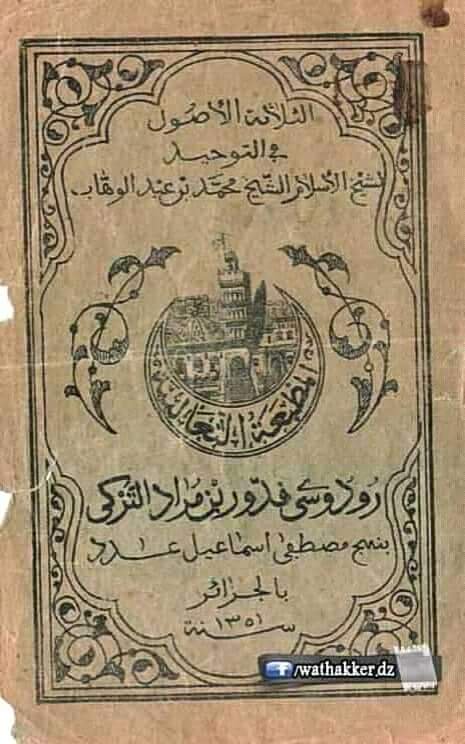 الثلاثة الأصول
في التوحيد
لشيخ الإسلام الشيخ محمد بن عبد الوهاب
المطبعة الثعالبية
رودوسي قدور بن مراد التركي
بنهج مصطفى اسماعيل عدد
بالجزائر
سنة ١٣٥١
/wathakker.dz